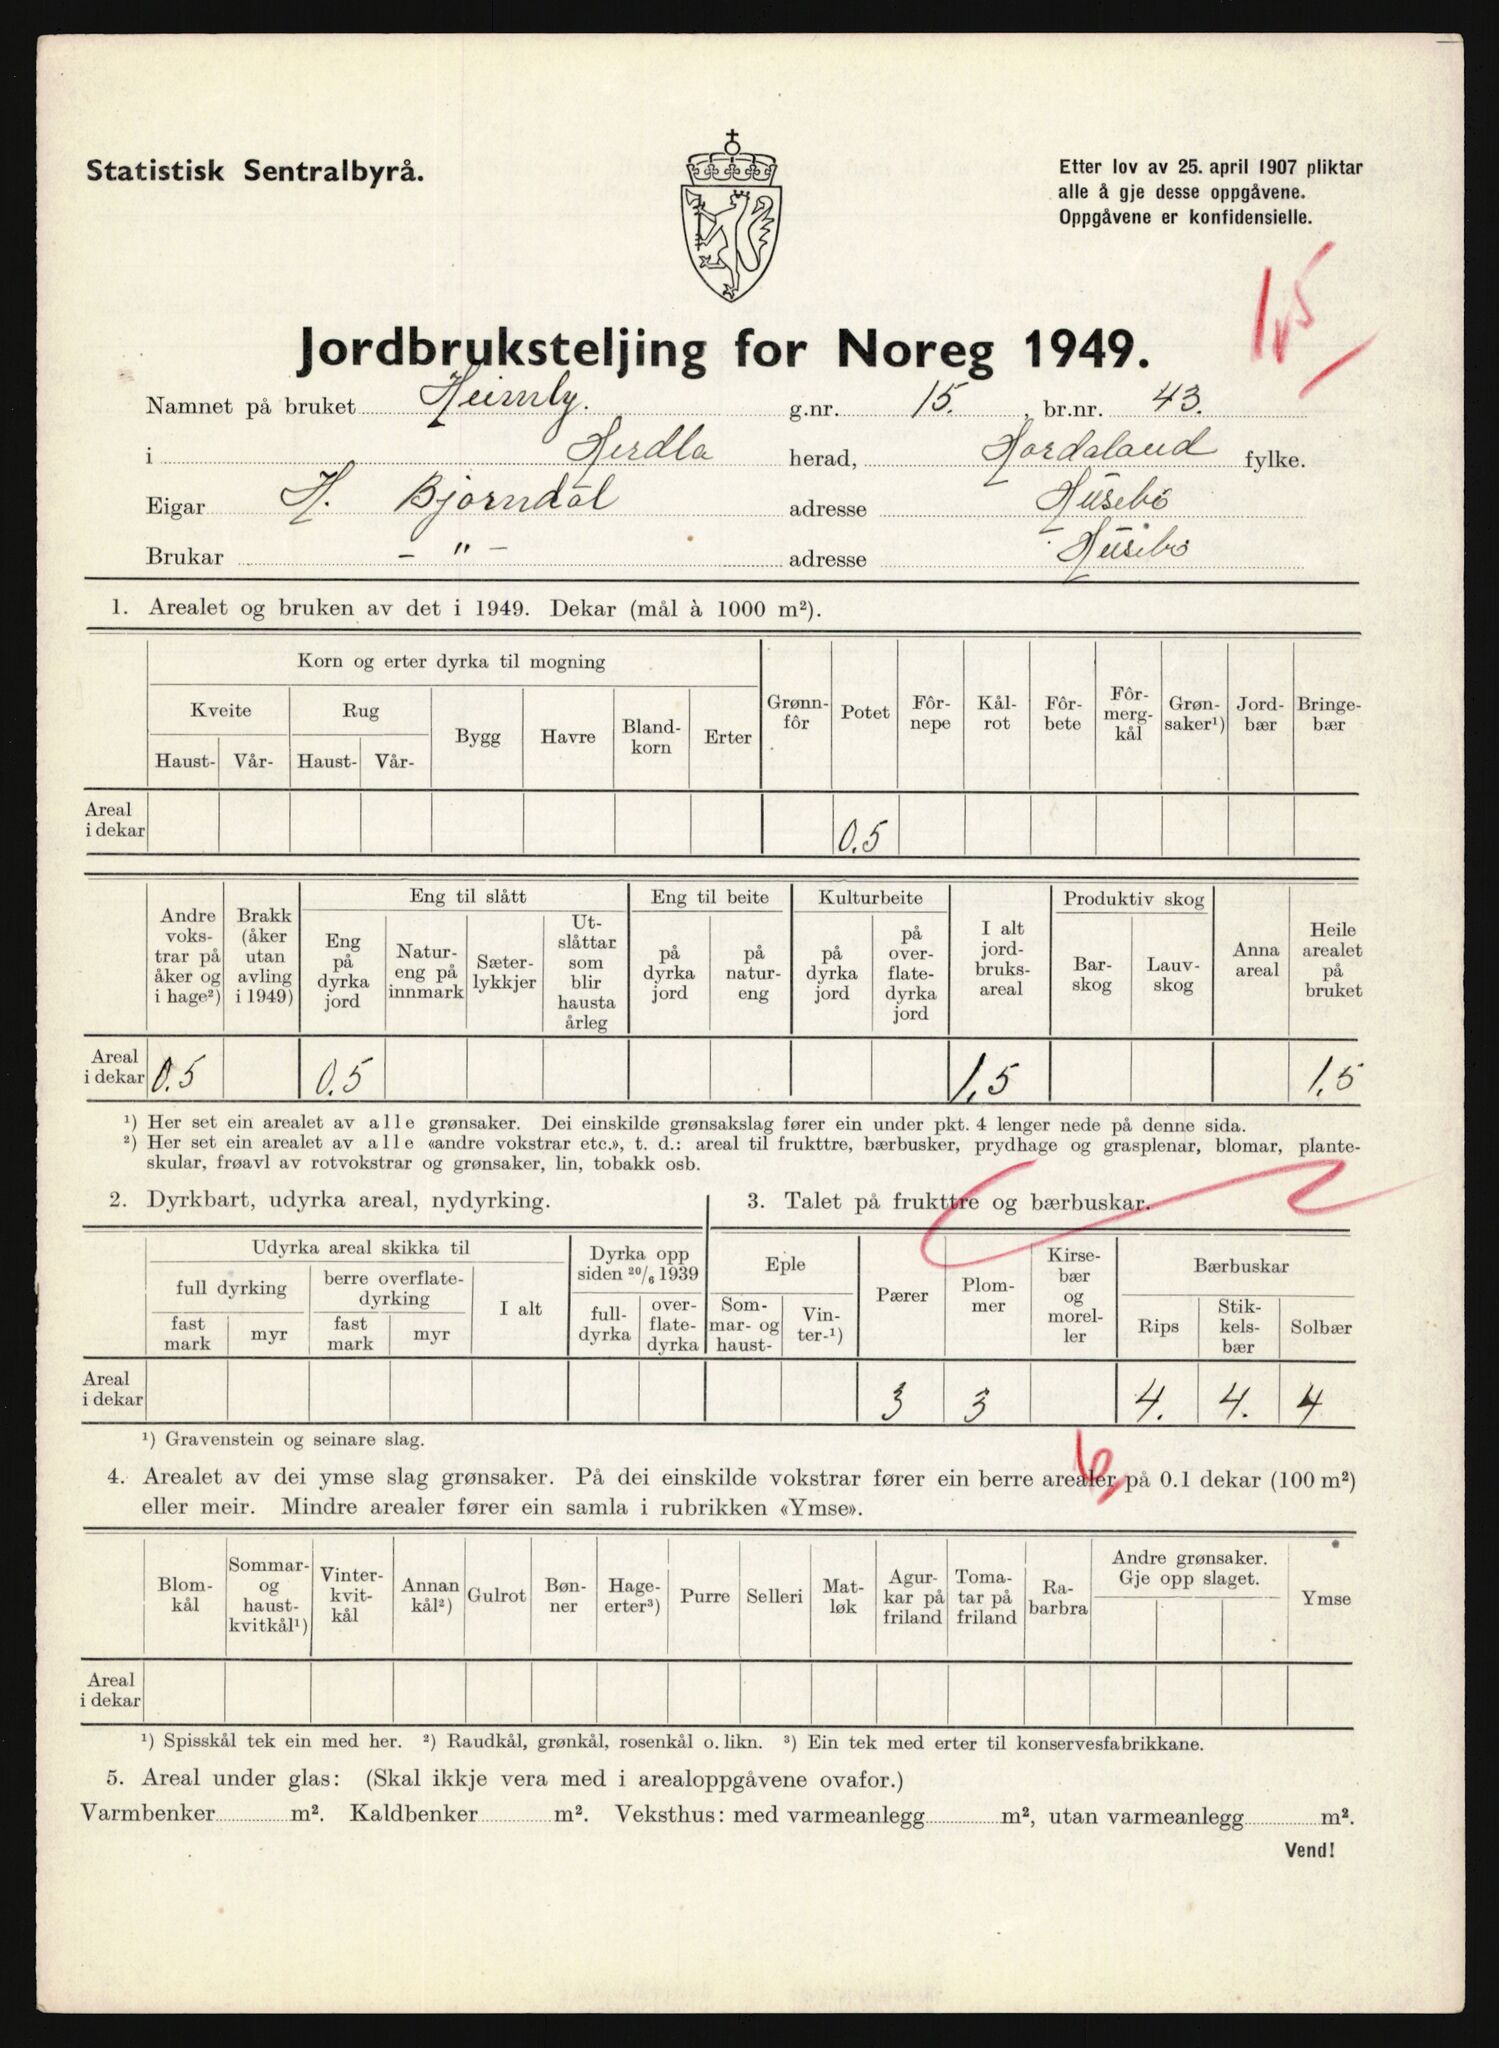 Statistisk Sentralbyrå.
Etter lov av 25. april 1907 pliktar
alle å gje desse oppgåvene.
Oppgåvene er konfidensielle.
1,5
Jordbruksteljing for Noreg 1949.
Namnet på bruket Heimly. g.nr. 15. , br.nr. 43.
i Herdla herad, Hordaland fylke.
Eigar H. Bjørndal adresse Husebø
Brukar – " – adresse Husebø
1. Arealet og bruken av det i 1949. Dekar (mål à 1000 m²).
Korn og erter dyrka til mogning
Kveite Rug Bygg Havre Bland-korn Erter Grønn-fôr Potet Fôr-nepe Kål-rot Fôr-bete Fôr-merg-kål Grøn-saker¹) Jord-bær Bringe-bær
Haust- Vår- Haust- Vår-
Areal i dekar 0.5
Andre voks-trar på åker og i hage²) Brakk (åker utan avling i 1949) Eng til slått Eng til beite Kulturbeite I alt jord-bruks-areal Produktiv skog Anna areal Heile arealet på bruket
Eng på dyrka jord Natur-eng på innmark Sæter-lykkjer Ut-slåttar som blir hausta årleg på dyrka jord på natur-eng på dyrka jord på over-flate-dyrka jord Bar-skog Lauv-skog
Areal i dekar 0.5 0.5 1,5 1,5
¹) Her set ein arealet av alle grønsaker. Dei einskilde grønsakslag fører ein under pkt. 4 lenger nede på denne sida.
²) Her set ein arealet av alle «andre vokstrar etc.», t. d.: areal til frukttre, bærbusker, prydhage og grasplenar, blomar, plante-
skular, frøavl av rotvokstrar og grønsaker, lin, tobakk osb.
2. Dyrkbart, udyrka areal, nydyrking.
3. Talet på frukttre og bærbuskar.
Udyrka areal skikka til Dyrka opp siden 20/6 1939 Eple Pærer Plom-mer Kirse-bær og morel-ler Bærbuskar
full dyrking berre overflate-dyrking I alt full-dyrka over-flate-dyrka Som-mar- og haust- Vin-ter-¹) Rips Stik-kels-bær Solbær
fast mark myr fast mark myr
Areal i dekar 3 3 4. 4. 4
¹) Gravenstein og seinare slag.
6
4. Arealet av dei ymse slag grønsaker. På dei einskilde vokstrar fører ein berre arealer på 0.1 dekar (100 m²)
eller meir. Mindre arealer fører ein samla i rubrikken «Ymse».
Blom-kål Sommar- og haust-kvitkål¹) Vinter-kvit-kål Annan kål²) Gulrot Bøn-ner Hage-erter³) Purre Selleri Mat-løk Agur-kar på friland Toma-tar på friland Ra-barbra Andre grønsaker. Gje opp slaget. Ymse
Areal i dekar
¹) Spisskål tek ein med her. ²) Raudkål, grønkål, rosenkål o. likn. ³) Ein tek med erter til konservesfabrikkane.
5. Areal under glas: (Skal ikkje vera med i arealoppgåvene ovafor.)
Varmbenker m². Kaldbenker m². Veksthus: med varmeanlegg m², utan varmeanlegg m².
Vend!